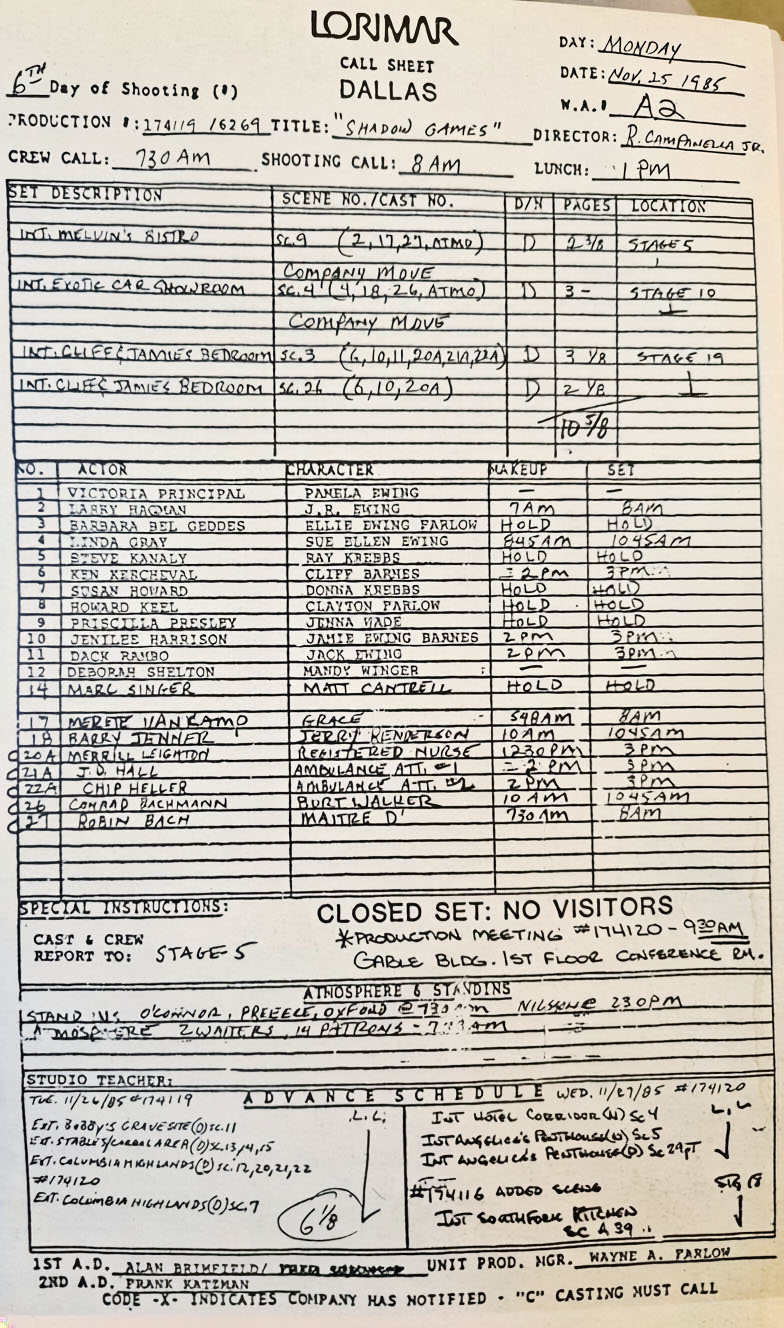 LORIMAR
DAY: MONDAY
CALL SHEET
6TH Day of Shooting (#)
DALLAS
DATE: NOV. 25 1985
W.A.# A2
PRODUCTION #: 174119 /6269 TITLE: "SHADOW GAMES"
DIRECTOR: R. CAMPANELLA JR.
CREW CALL: 730 AM SHOOTING CALL: 8 AM LUNCH: 1 PM
SET DESCRIPTION SCENE NO./CAST NO. D/N PAGES LOCATION
INT. MELVIN'S BISTRO SC. 9 (2, 17, 27, ATMO) D 2 3/8 STAGE 5
COMPANY MOVE
INT. EXOTIC CAR SHOWROOM SC. 4 (4, 18, 26, ATMO) D 3 - STAGE 10
COMPANY MOVE
INT. CLIFF & JAMIES BEDROOM SC. 3 (6, 10, 11, 20A, 21A, 22A) D 3 1/8 STAGE 19
INT. CLIFF & JAMIES BEDROOM SC. 26 (6, 10, 20A) D 2 1/8
10 5/8
NO. ACTOR CHARACTER MAKEUP SET
1 VICTORIA PRINCIPAL PAMELA EWING — —
2 LARRY HAGMAN J.R. EWING 7AM 8AM
3 BARBARA BEL GEDDES ELLIE EWING FARLOW HOLD HOLD
4 LINDA GRAY SUE ELLEN EWING 845AM 1045AM
5 STEVE KANALY RAY KREBBS HOLD HOLD
6 KEN KERCHEVAL CLIFF BARNES 2PM 3PM
7 SUSAN HOWARD DONNA KREBBS HOLD HOLD
8 HOWARD KEEL CLAYTON FARLOW HOLD HOLD
9 PRISCILLA PRESLEY JENNA WADE HOLD HOLD
10 JENILEE HARRISON JAMIE EWING BARNES 2PM 3PM
11 DACK RAMBO JACK EWING 2PM 3PM
12 DEBORAH SHELTON MANDY WINGER — —
14 MARC SINGER MATT CANTRELL HOLD HOLD
17 MERETE VAN KAMP GRACE 548AM 8AM
18 BARRY JENNER JERRY KENDERSON 10AM 1045AM
C 20A MERRILL LEIGHTON REGISTERED NURSE 1230PM 3PM
C 21A J.D. HALL AMBULANCE ATT. #1 2PM 3PM
C 22A CHIP HELLER AMBULANCE ATT. #2 2PM 3PM
C 26 CONRAD BACHMANN BURT WALKER 10AM 1045AM
C 27 ROBIN BACH MAITRE D' 730AM 8AM
SPECIAL INSTRUCTIONS:
CLOSED SET: NO VISITORS
CAST & CREW
REPORT TO: STAGE 5
*PRODUCTION MEETING #174120 - 930 AM
GABLE BLDG. 1ST FLOOR CONFERENCE RM.
ATMOSPHERE & STANDINS
STAND INS O'CONNOR, PREECE, OXFORD @ 730 AM NILSSON @ 230PM
ATMOSPHERE 2 WAITERS, 14 PATRONS - 730AM
STUDIO TEACHER:
ADVANCE SCHEDULE
TUE. 11/26/85 #174119
EXT. BOBBY'S GRAVESITE (D) SC. 11
EXT. STABLES/CORRAL AREA (D) SC. 13, 4, 15
EXT. COLUMBIA HIGHLANDS (D) SC. 12, 20, 21, 22
#174120
EXT. COLUMBIA HIGHLANDS (D) SC. 7
L.L.
6 1/8
WED. 11/27/85 #174120
INT HOTEL CORRIDOR (N) SC 4 L.L
INT ANGELICA'S PENTHOUSE (N) SC 5
INT ANGELICA'S PENTHOUSE (D) SC 29PT
#174116 ADDED SCENE STG 18
INT SOUTHFORK KITCHEN
SC A39
1ST A.D. ALAN BRIMFIELD/ UNIT PROD. MGR. WAYNE A. FARLOW
2ND A.D. FRANK KATZMAN
CODE -X- INDICATES COMPANY HAS NOTIFIED - "C" CASTING MUST CALL